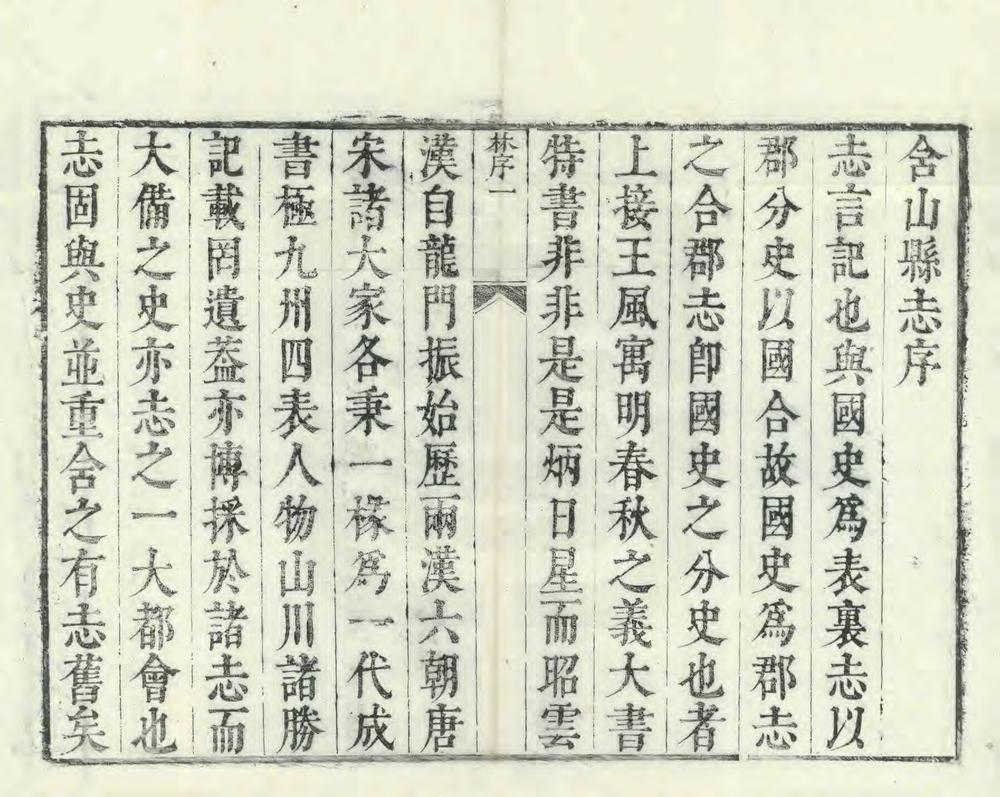 含山縣志序
志言記也與國史爲表裏志以
郡分史以國合故國史爲郡志
之合郡志卽國史之分史也者
上接王風寓明春秋之義大書
特書非非是是炳日星而昭雲
林序一
漢自龍門振始歷兩漢六朝唐
宋諸大家各秉一椽爲一代成
書極九州四表人物山川諸勝
記載罔遺葢亦博採於諸志而
大備之史亦志之一大都會也
志固與史並重含之有志舊矣